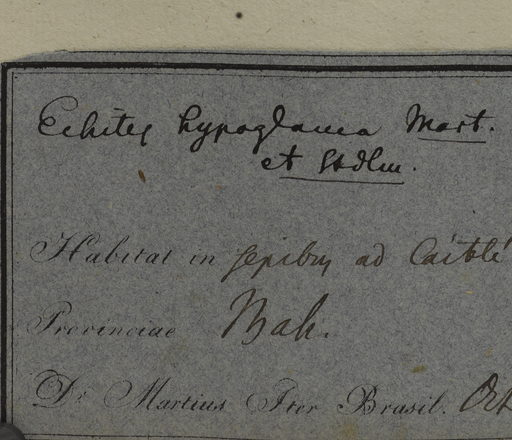 Echites hypoglauca Mart.
et Stdlm.
Habitat in sepibus ad Caitté
Provinciae Bah.
Dr. Martius Iter Brasil. Oct